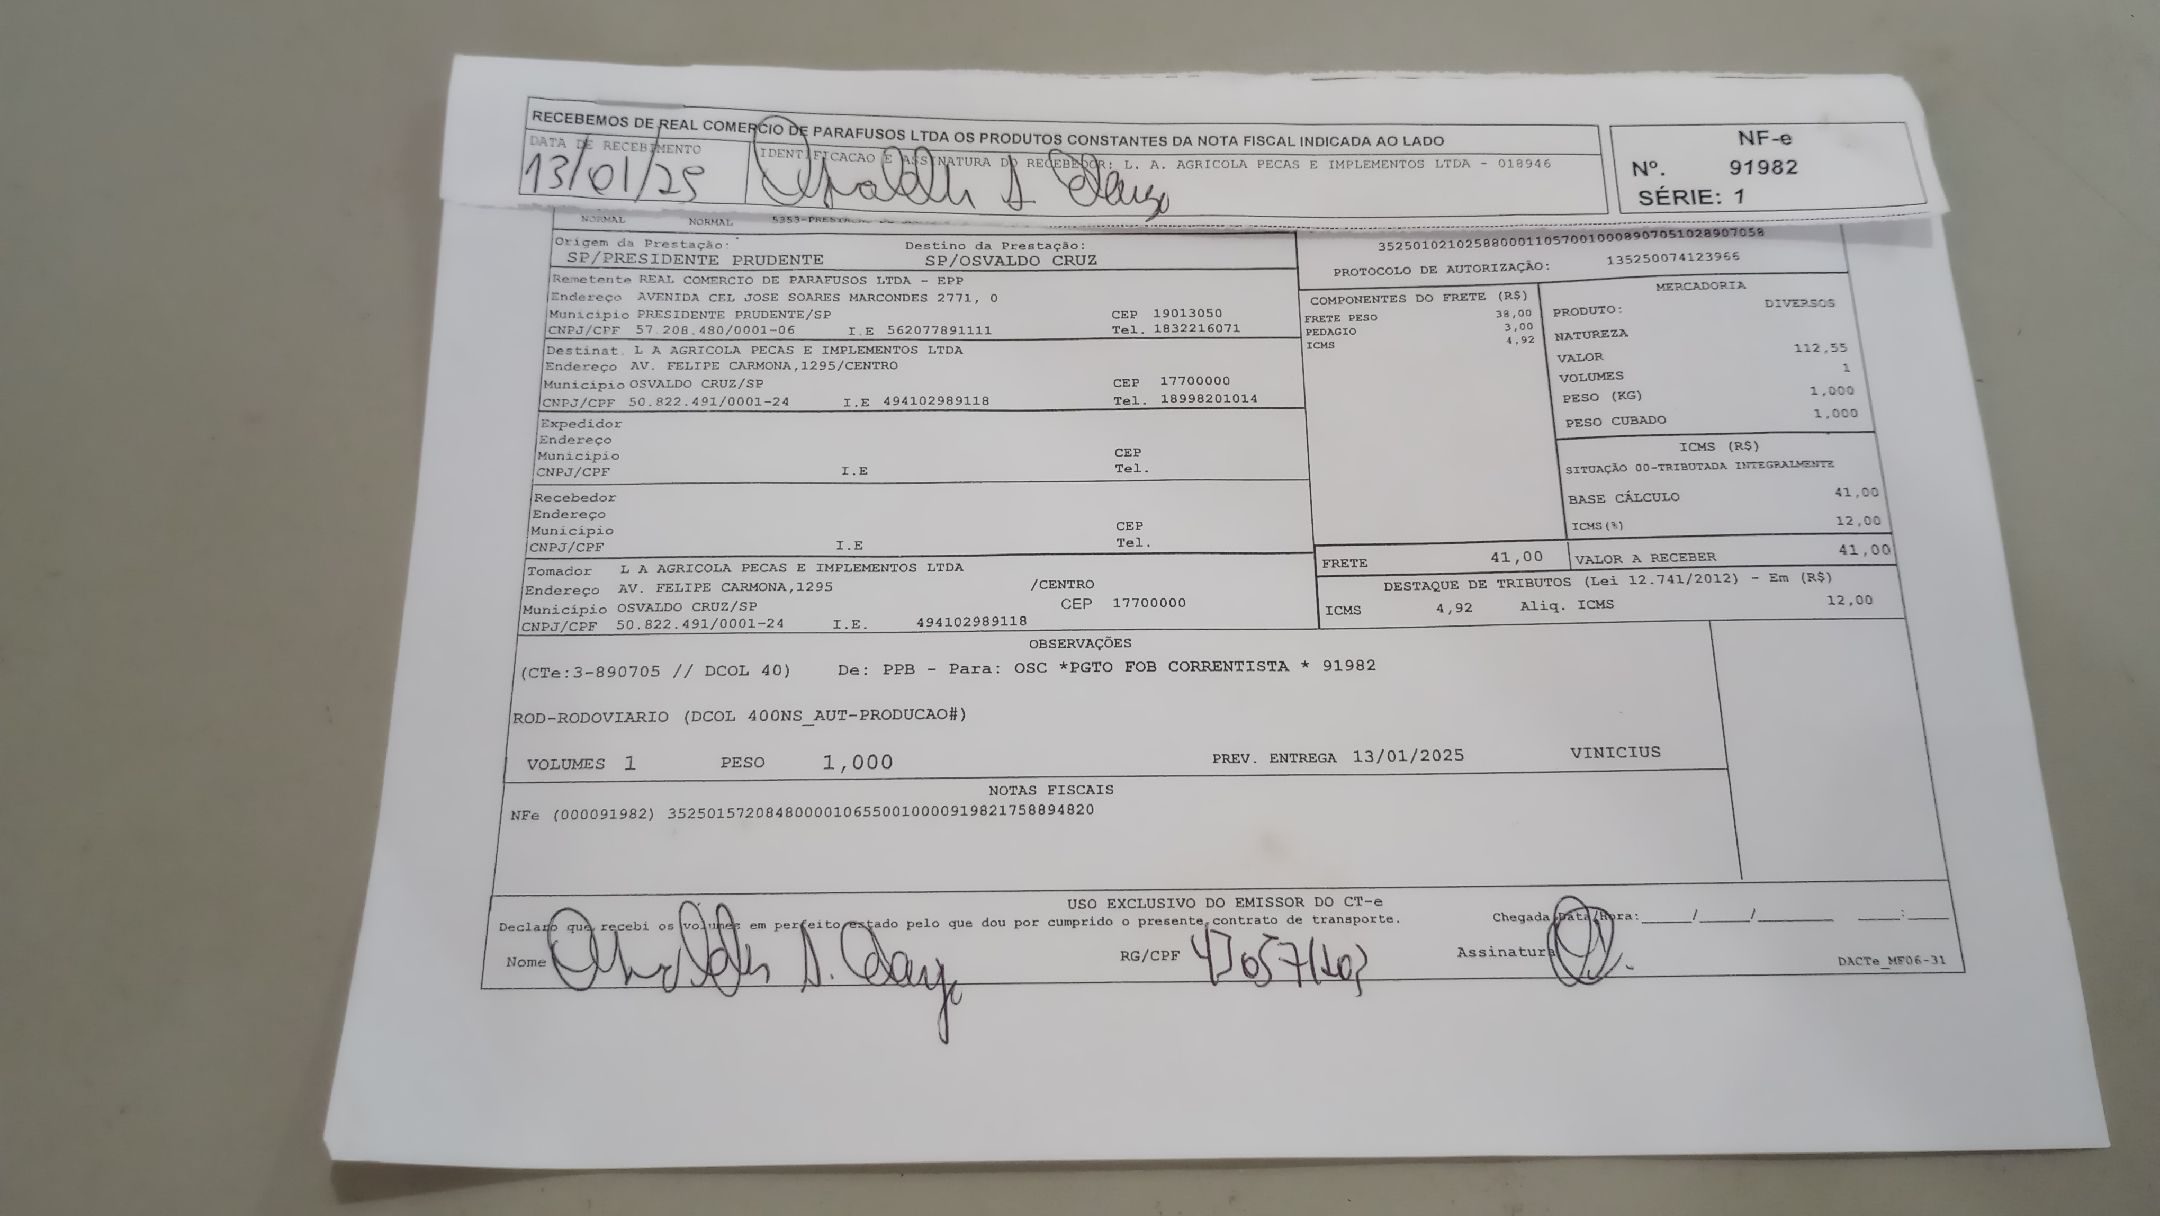 RECEBEMOS DE REAL COMERCIO DE PARAFUSOS LTDA OS PRODUTOS CONSTANTES DA NOTA FISCAL INDICADA AO LADO
DATA DE RECEBIMENTO
IDENTIFICACAO E ASSINATURA DO RECEBEDOR: L. A. AGRICOLA PECAS E IMPLEMENTOS LTDA - 018946
13/01/25
NF-e
Nº. 91982
SÉRIE: 1
NORMAL NORMAL
Origem da Prestação: Destino da Prestação:
SP/PRESIDENTE PRUDENTE SP/OSVALDO CRUZ
35250102102588000110570010008907051028907058
PROTOCOLO DE AUTORIZAÇÃO: 135250074123966
Remetente REAL COMERCIO DE PARAFUSOS LTDA - EPP
Endereço AVENIDA CEL JOSE SOARES MARCONDES 2771, 0
Municipio PRESIDENTE PRUDENTE/SP CEP 19013050
CNPJ/CPF 57.208.480/0001-06 I.E 562077891111 Tel. 1832216071
Destinat. L A AGRICOLA PECAS E IMPLEMENTOS LTDA
Endereço AV. FELIPE CARMONA,1295/CENTRO
Município OSVALDO CRUZ/SP CEP 17700000
CNPJ/CPF 50.822.491/0001-24 I.E 494102989118 Tel. 18998201014
Expedidor
Endereço
Município CEP
CNPJ/CPF I.E Tel.
Recebedor
Endereço
Município CEP
CNPJ/CPF I.E Tel.
Tomador L A AGRICOLA PECAS E IMPLEMENTOS LTDA
Endereço AV. FELIPE CARMONA,1295 /CENTRO
Município OSVALDO CRUZ/SP CEP 17700000
CNPJ/CPF 50.822.491/0001-24 I.E. 494102989118
COMPONENTES DO FRETE (R$)
FRETE PESO 38,00
PEDAGIO 3,00
ICMS 4,92
MERCADORIA
PRODUTO: DIVERSOS
NATUREZA
VALOR 112,55
VOLUMES 1
PESO (KG) 1,000
PESO CUBADO 1,000
ICMS (R$)
SITUAÇÃO 00-TRIBUTADA INTEGRALMENTE
BASE CÁLCULO 41,00
ICMS(%) 12,00
FRETE 41,00 VALOR A RECEBER 41,00
DESTAQUE DE TRIBUTOS (Lei 12.741/2012) - Em (R$)
ICMS 4,92 Aliq. ICMS 12,00
OBSERVAÇÕES
(CTe:3-890705 // DCOL 40) De: PPB - Para: OSC *PGTO FOB CORRENTISTA * 91982
ROD-RODOVIARIO (DCOL 400NS_AUT-PRODUCAO#)
VOLUMES 1 PESO 1,000 PREV. ENTREGA 13/01/2025 VINICIUS
NOTAS FISCAIS
NFe (000091982) 35250157208480000106550010000919821758894820
USO EXCLUSIVO DO EMISSOR DO CT-e
Declaro que recebi os volumes em perfeito estado pelo que dou por cumprido o presente contrato de transporte. Chegada Data/Hora: ____/____/______ ___:____
Nome RG/CPF Assinatura
DACTe_MF06-31